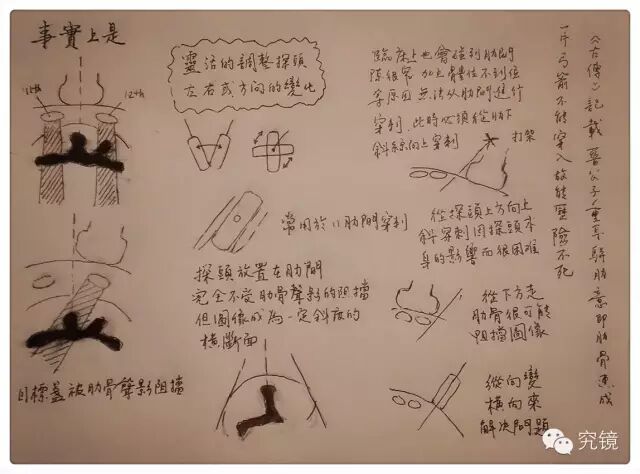 事實上是
11th
12th
目標蓋被肋骨聲影阻擋
靈活的調整探頭
左右或方向的變化
常用於11肋間穿刺
探頭放置在肋間
完全不受肋骨聲影的阻擋
但圖像成為一定斜度的
橫斷面
臨床上也會碰到肋間
隙很窄 加上骨性不到位
等原因 無法从肋間進行
穿刺,此時必須從肋下
斜線向上穿刺
打架
從探頭上方向上
斜穿刺因探頭本
身的影響而很困難
從下方走
肋骨很可能
阻擋圖像
縱向變
橫向來
解決問題
《左傳》記載晉公子重耳駢肋意即肋骨連成
一片弓箭不能穿入故能歷險不死
究镜